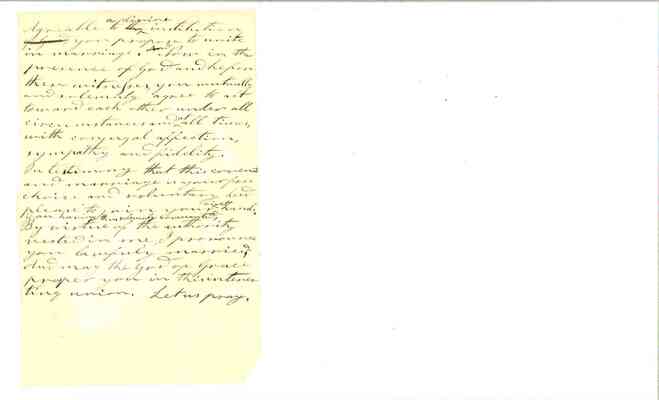 a divine
Agreable to the institution
you propose to unite
in marriage. Now in the
presence of God and before
these witnesses you mutually
and solemnly agree to act
toward each other under all
circumstances and at all times,
with conjugal affection,
sympathy and fidelity.
In testimony that this covenant
and marriage is your free
choice and voluntary
please to join your right hand.
you having thus
By virtue of the authority
vested in me, I pronounce
you lawfully married,
And may the God of Grace
prosper you in this interes
ting union. Let us pray.